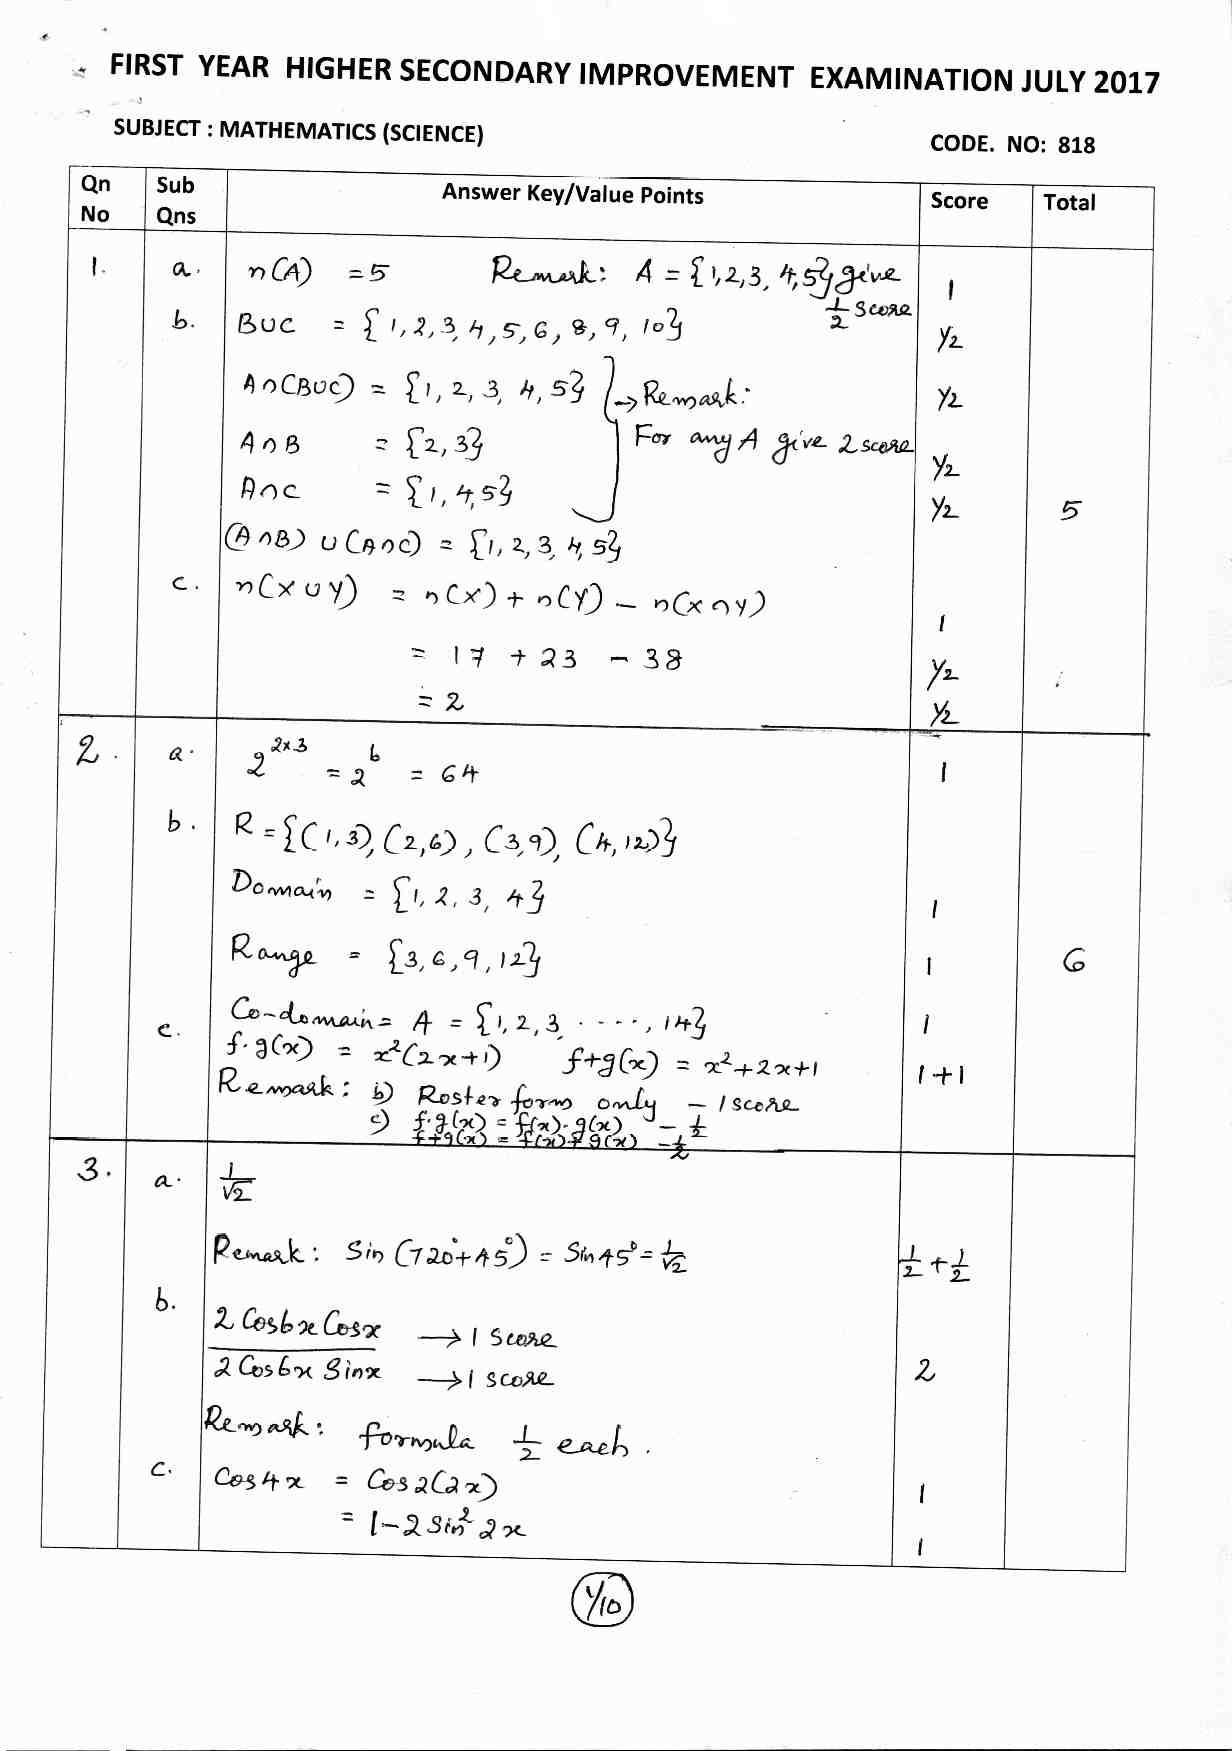 FIRST YEAR HIGHER SECONDARY IMPROVEMENT EXAMINATION JULY 2017
SUBJECT : MATHEMATICS (SCIENCE)
CODE. NO: 818
Qn No Sub Qns Answer Key/Value Points Score Total
1. a. n(A) = 5 Remark: A = {1,2,3,4,5} give 1/2 score 1
b. B∪C = {1,2,3,4,5,6,8,9,10} 1/2
A∩(B∪C) = {1,2,3,4,5} → Remark: 1/2
A∩B = {2,3} For any A give 2 score 1/2
A∩C = {1,4,5} 1/2 5
(A∩B) ∪ (A∩C) = {1,2,3,4,5}
c. n(X∪Y) = n(X) + n(Y) – n(X∩Y) 1
= 17 + 23 – 38 1/2
= 2 1/2
2. a. 2^{2×3} = 2^6 = 64 1
b. R = {(1,3), (2,6), (3,9), (4,12)}
Domain = {1,2,3,4} 1
Range = {3,6,9,12} 1 6
Co-domain = A = {1,2,3,.....,14} 1
c. f·g(x) = x²(2x+1) f+g(x) = x²+2x+1 1+1
Remark: b) Roster form only – 1 score
c) f·g(x) = f(x)·g(x) – 1/2
f+g(x) = f(x)+g(x) – 1/2
3. a. 1/√2
Remark: Sin (720°+45°) = Sin 45° = 1/√2 1/2 + 1/2
b. 2 Cos6x Cosx → 1 Score
2 Cos6x Sinx → 1 score 2
Remark: formula 1/2 each.
c. Cos4x = Cos2(2x) 1
= 1–2 Sin² 2x 1
1/10